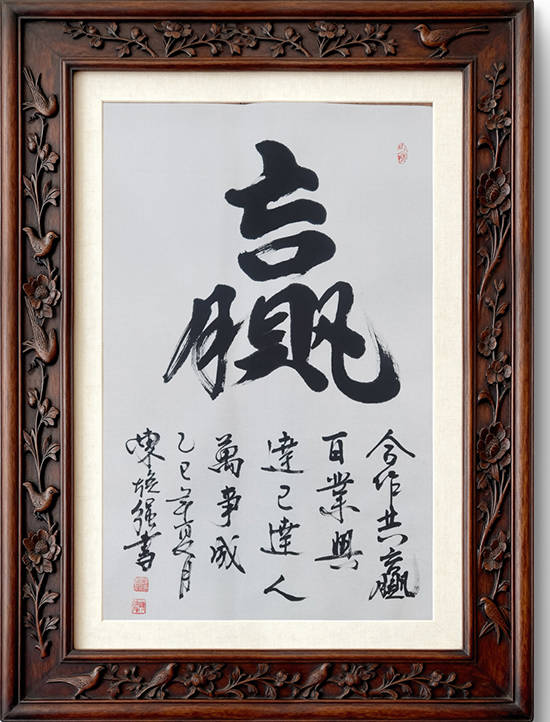 贏
合作共贏
百業興
達己達人
萬事成
乙巳年夏月
陳强書